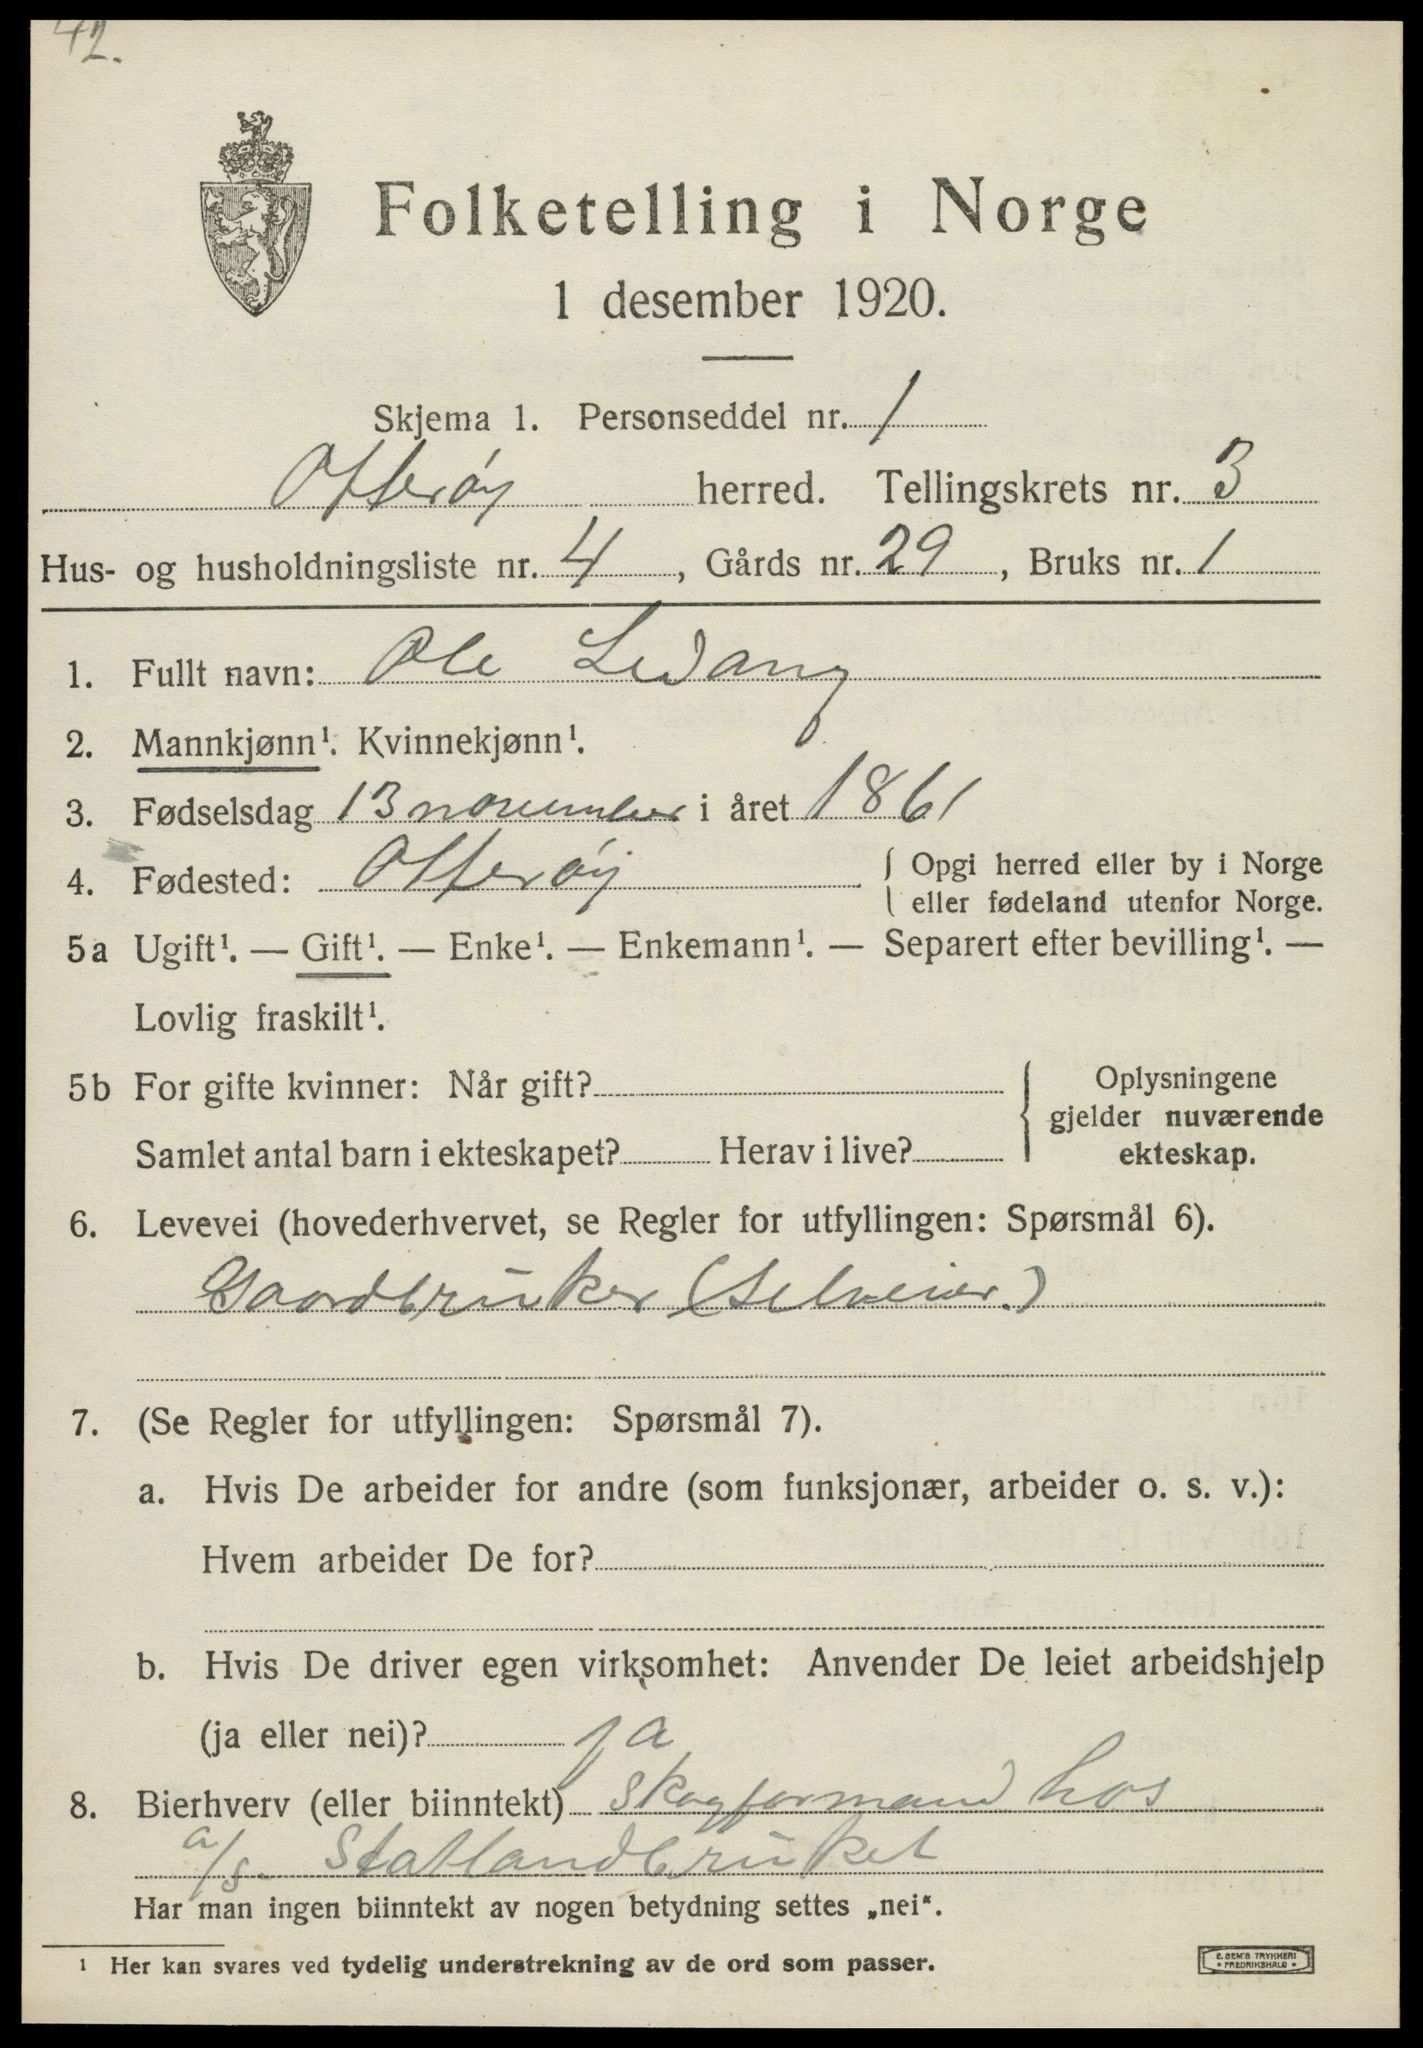 42.
Folketelling i Norge
1 desember 1920.
Skjema 1. Personseddel nr. 1
Otterøy herred. Tellingskrets nr. 3
Hus- og husholdningsliste nr. 4, Gårds nr. 29, Bruks nr. 1
1. Fullt navn: Ole Ledang
2. Mannkjønn¹. Kvinnekjønn¹.
3. Fødselsdag 13 november i året 1861
4. Fødested: Otterøy { Opgi herred eller by i Norge
eller fødeland utenfor Norge.
5a Ugift¹. — Gift¹. — Enke¹. — Enkemann¹. — Separert efter bevilling¹. —
Lovlig fraskilt¹.
5b For gifte kvinner: Når gift? { Oplysningene
gjelder nuværende
Samlet antal barn i ekteskapet? Herav i live? ekteskap.
6. Levevei (hovederhvervet, se Regler for utfyllingen: Spørsmål 6).
Gaardbruker (selveier.)
7. (Se Regler for utfyllingen: Spørsmål 7).
a. Hvis De arbeider for andre (som funksjonær, arbeider o. s. v.):
Hvem arbeider De for?
b. Hvis De driver egen virksomhet: Anvender De leiet arbeidshjelp
(ja eller nei)? ja
8. Bierhverv (eller biinntekt) Skogformand hos
a/s. Statlandbruket
Har man ingen biinntekt av nogen betydning settes „nei“.
¹ Her kan svares ved tydelig understrekning av de ord som passer.
E. SEM'S TRYKKERI
• FREDRIKSHALD •